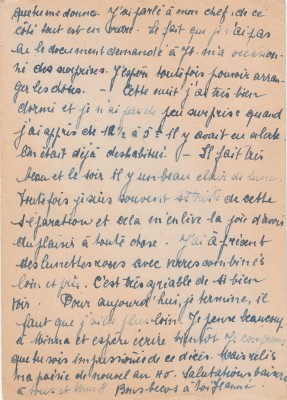 que tu me donnes. J'ai parlé à mon chef, de ce
côté tout est en ordre. Le fait que je n'ai pas
le document demandé à m'a occasion-
né des surprises. J'espère toutefois pouvoir arran-
ger les choses. — Cette nuit j'ai très bien
dormi et je n'ai pas peu surprise quand
j'ai appris de 12½ à 5 h il y avait en alerte.
On était déjà deshabitué. — Il fait très
beau et le soir il y un beau clair de lune.
Toutefois je suis souvent triste de cette
séparation et cela m'enlève la joie d'avoir
du plaisir à toute chose. J'ai à présent
des lunettes roses avec verres combinés
loin et près. C'est très agréable de si bien
voir. Pour aujourd'hui, je termine, il
faut que j'aille plus loin. Je pense beaucoup
à Minna et espère écrire bientôt. Je comprends
que tu sois impressionnée de ce décès. Mais relis
ma poésie de nouvel an 40. Salutations baisers
à tous et Bons becos à toi